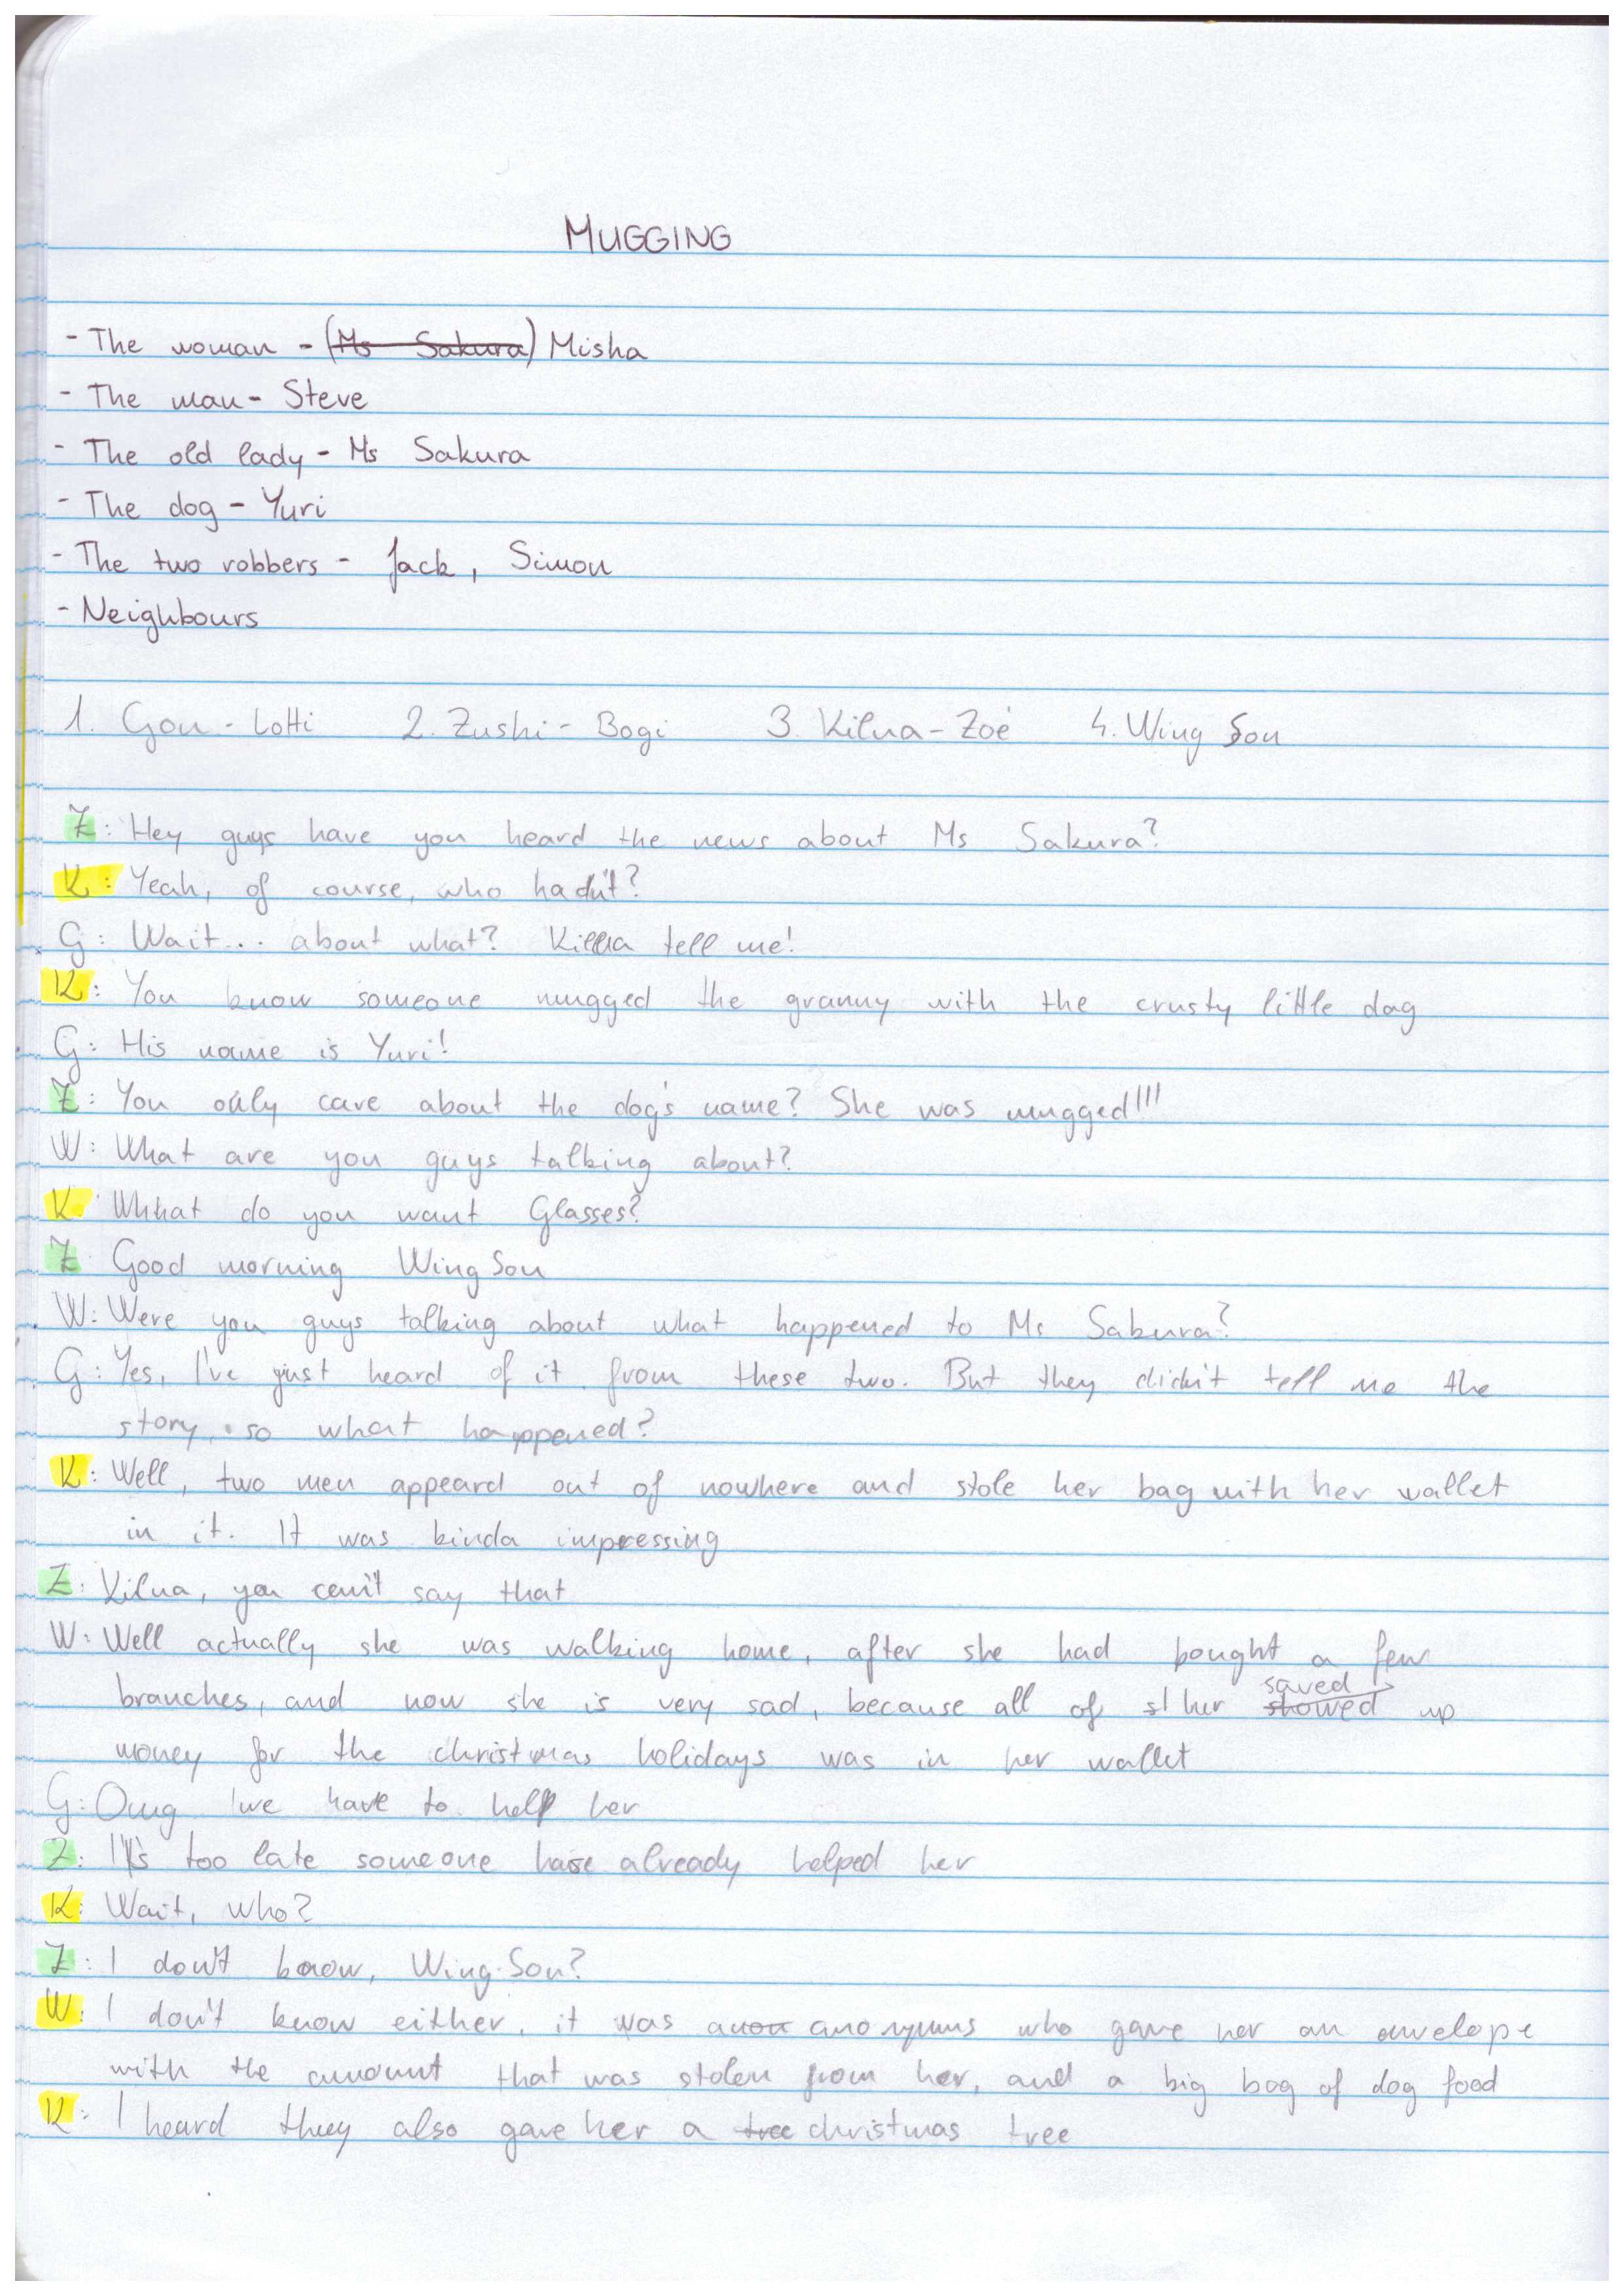 MUGGING
- The woman - (Ms Sakura) Misha
- The man - Steve
- The old lady - Ms Sakura
- The dog - Yuri
- The two robbers - Jack, Simon
- Neighbours
1. Gon - Lotti 2. Zushi - Bogi 3. Kilua - Zoé 4. Wing Son
Z: Hey guys have you heard the news about Ms Sakura?
K: Yeah, of course, who hadn't?
G: Wait... about what? Killua tell me!
K: You know someone mugged the granny with the crusty little dog
G: His name is Yuri!
Z: You only care about the dog's name? She was mugged!!!
W: What are you guys talking about?
K: Whhat do you want Glasses?
Z: Good morning Wing Son
W: Were you guys talking about what happened to Ms Sakura?
G: Yes, I've just heard of it from these two. But they didn't tell me the
story, so what happened?
K: Well, two men appeard out of nowhere and stole her bag with her wallet
in it. It was kinda impressing
Z: Kilua, you can't say that
W: Well actually she was walking home, after she had bought a few
saved
branches, and now she is very sad, because all of her showed up
money for the christmas holidays was in her wallet
G: Omg we have to help her
Z: It's too late someone has already helped her
K: Wait, who?
Z: I don't know, Wing Son?
W: I don't know either, it was anon anonymus who gave her an anvelope
with the amount that was stolen from her, and a big bag of dog food
K: I heard they also gave her a tree christmas tree